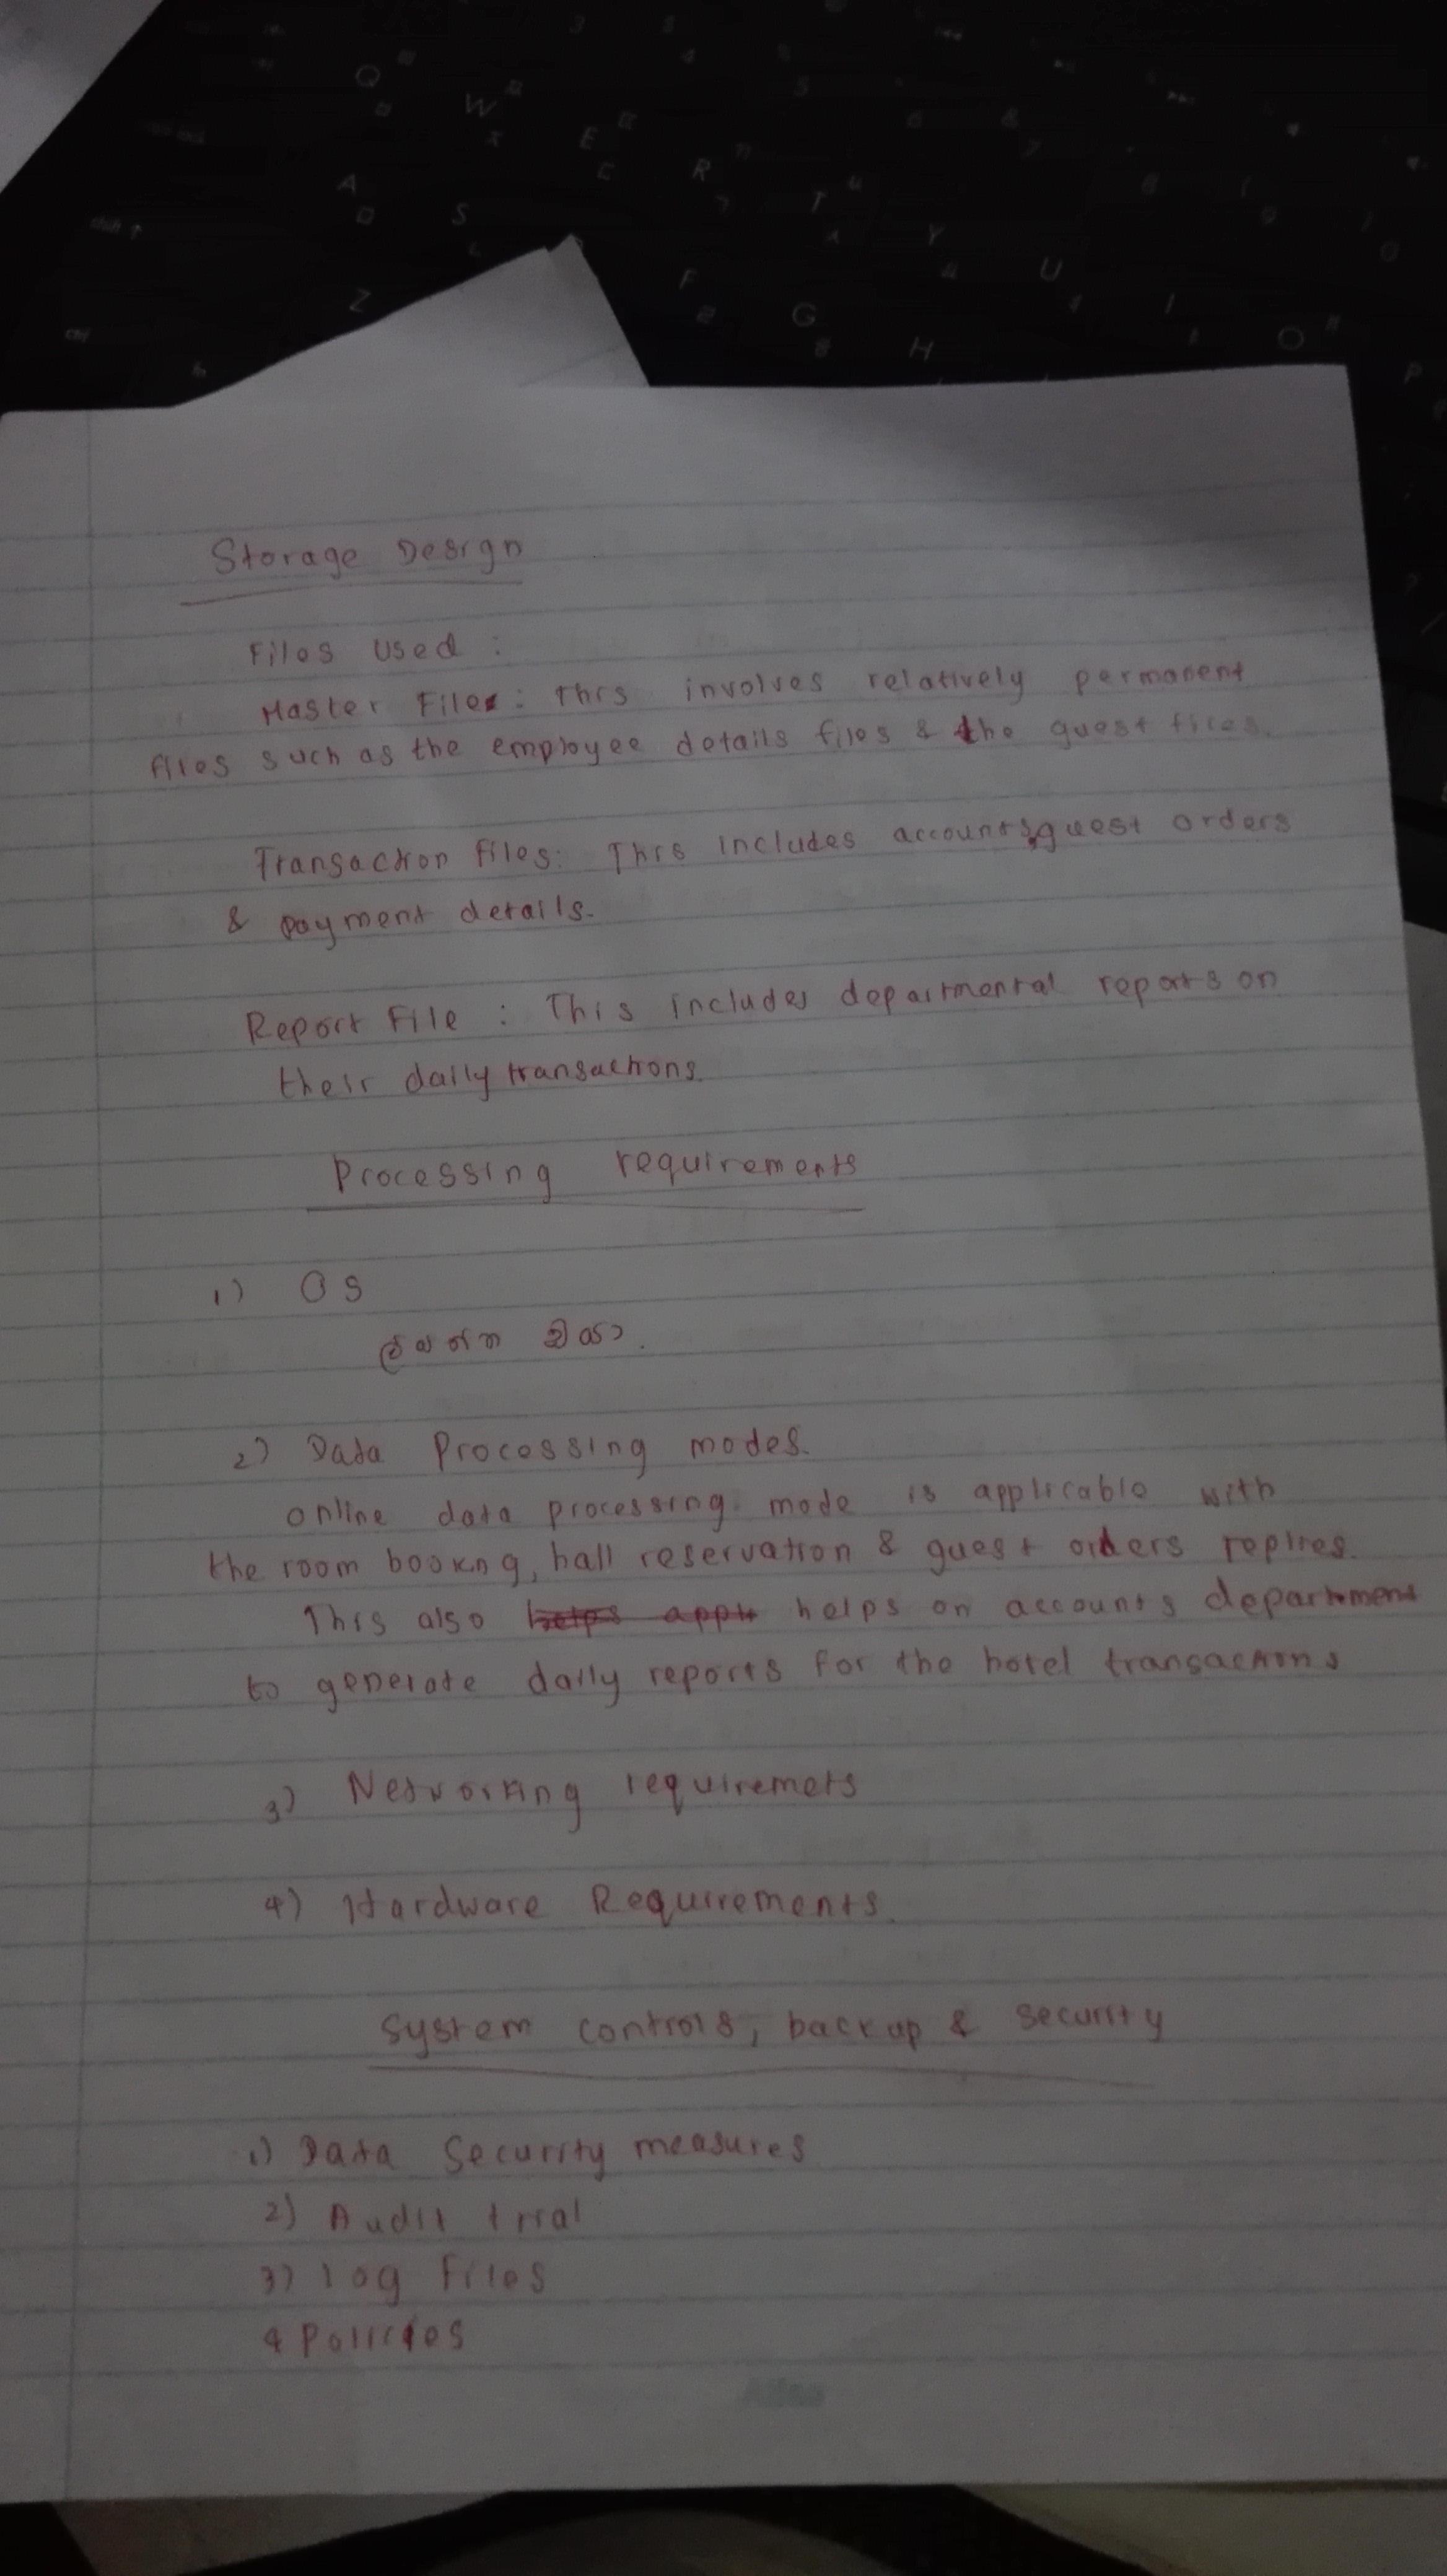 Storage Design
Files Used :
Master File : This involves relatively permanent
files such as the employee details files & the guest files.
Transaction files: This includes accounts, guest orders
& payment details.
Report File : This includes departmental reports on
their daily transactions
Processing requirements
1) OS
2) Data Processing modes.
online data processing mode is applicable with
the room booking, hall reservation & guest orders
This also helps on accounts department
to generate daily reports for the hotel transactions
3) Networking requiremets
4) Hardware Requirements.
System controls, backup & security
1) Data Security measures
2) Audit trial
3) log Files
4 Policies
Atlas
Q W E R T Y U I O P
A S F G H
Z